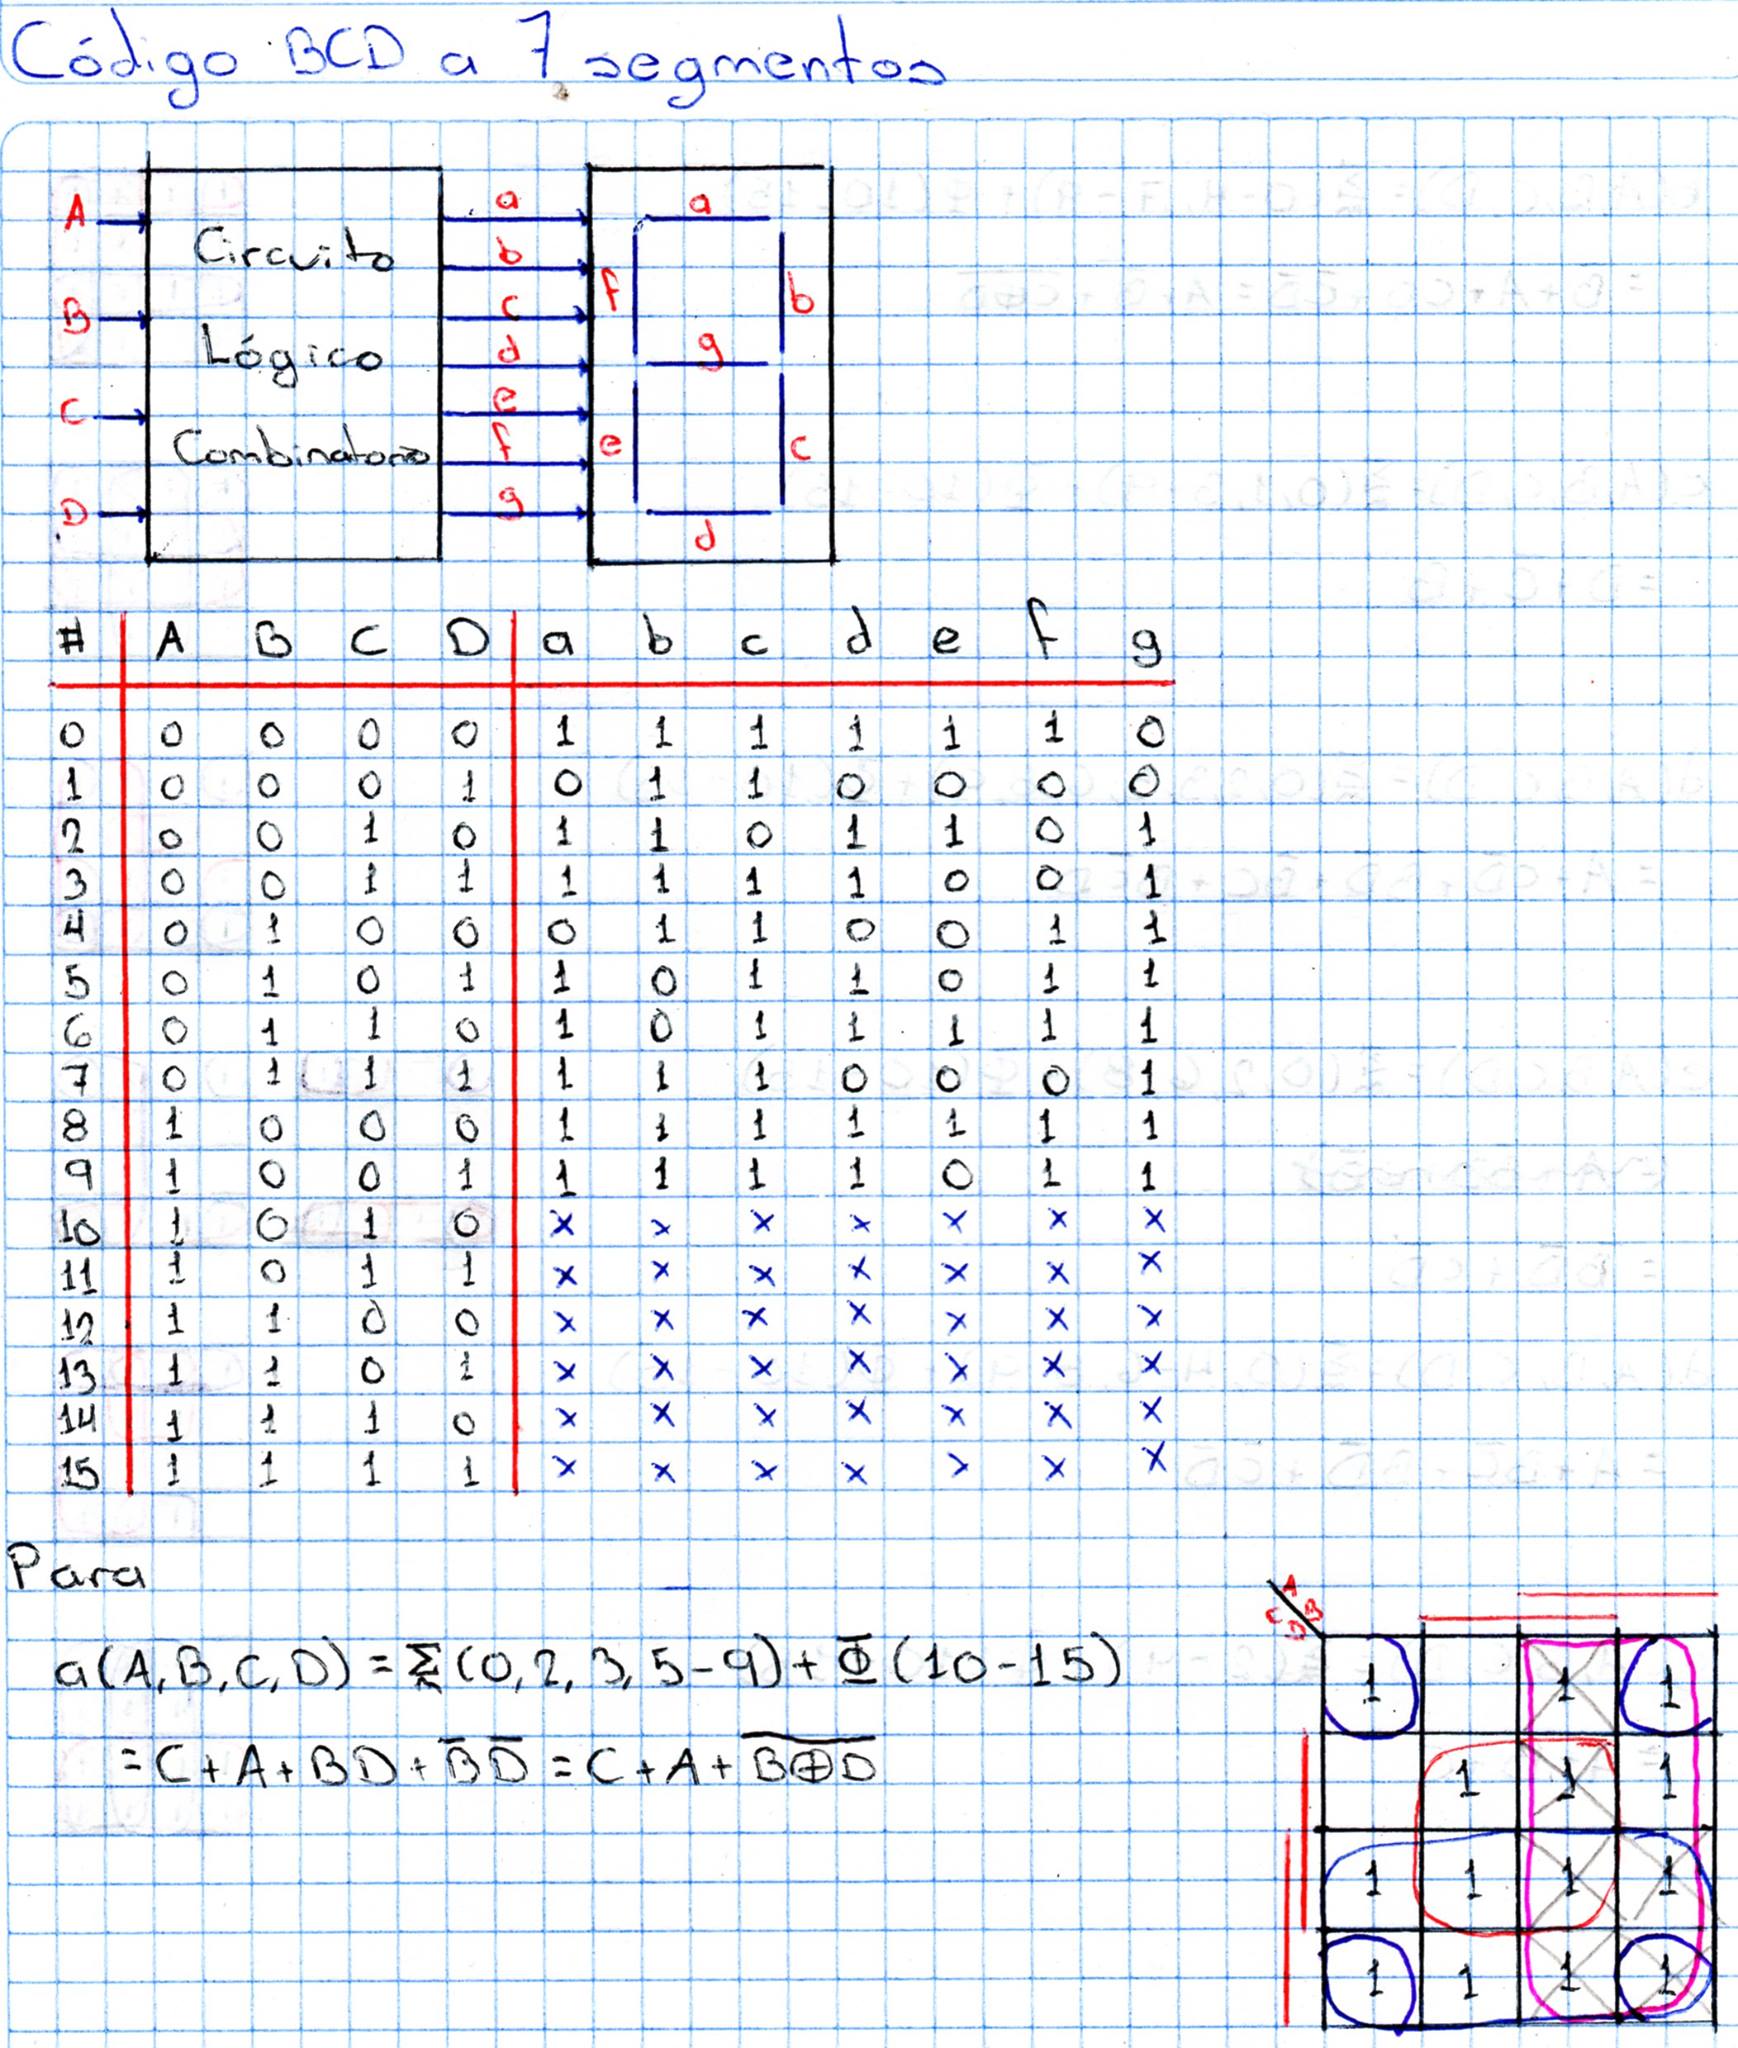 Código BCD a 7 segmentos
A
B
C
D
Circuito
Lógico
Combinatorio
a
b
c
d
e
f
g
a
f b
g
e c
d
# A B C D a b c d e f g
0 0 0 0 0 1 1 1 1 1 1 0
1 0 0 0 1 0 1 1 0 0 0 0
2 0 0 1 0 1 1 0 1 1 0 1
3 0 0 1 1 1 1 1 1 0 0 1
4 0 1 0 0 0 1 1 0 0 1 1
5 0 1 0 1 1 0 1 1 0 1 1
6 0 1 1 0 1 0 1 1 1 1 1
7 0 1 1 1 1 1 1 0 0 0 1
8 1 0 0 0 1 1 1 1 1 1 1
9 1 0 0 1 1 1 1 1 0 1 1
10 1 0 1 0 x x x x x x x
11 1 0 1 1 x x x x x x x
12 1 1 0 0 x x x x x x x
13 1 1 0 1 x x x x x x x
14 1 1 1 0 x x x x x x x
15 1 1 1 1 x x x x x x x
Para
a(A,B,C,D) = Σ(0,2,3,5-9)+Φ(10-15)
= C+A+BD+B̅D̅ = C+A+B̅⊕̅D̅
A B
C D
1 1 1
1 1 1
1 1 1 1
1 1 1 1